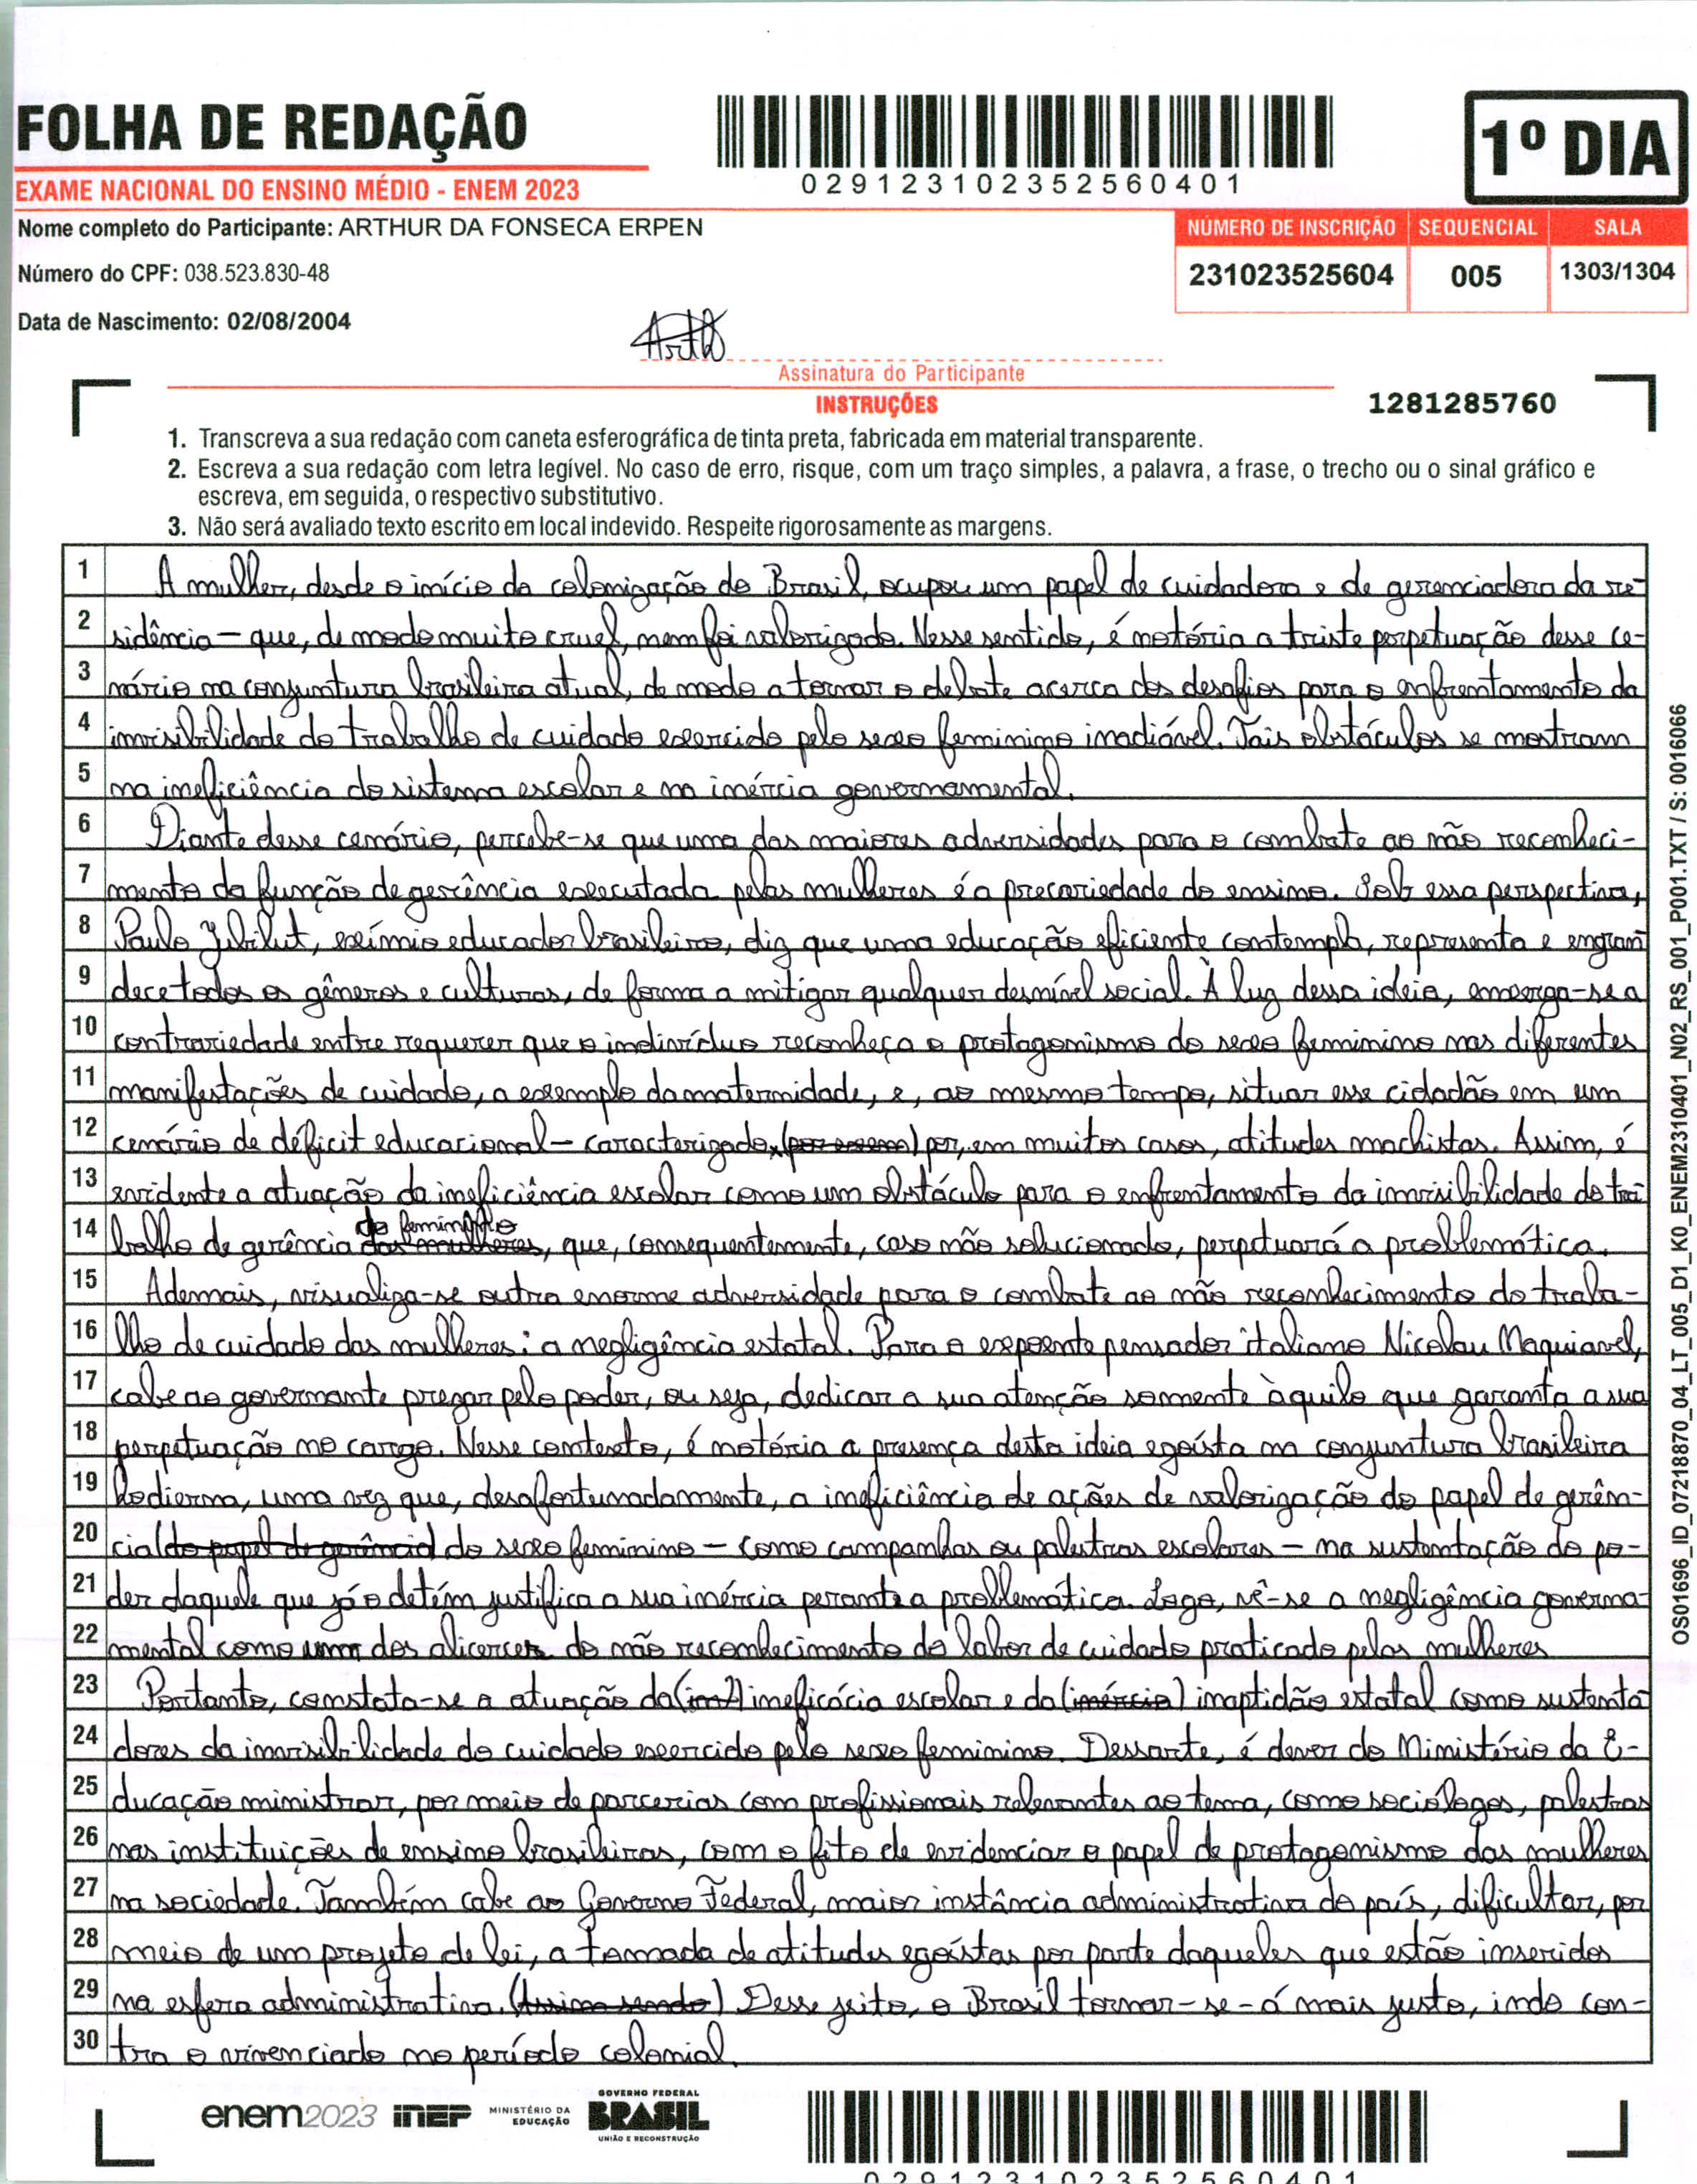 FOLHA DE REDAÇÃO
EXAME NACIONAL DO ENSINO MÉDIO - ENEM 2023
029123102352560401
1º DIA
Nome completo do Participante: ARTHUR DA FONSECA ERPEN
Número do CPF: 038.523.830-48
Data de Nascimento: 02/08/2004
NÚMERO DE INSCRIÇÃO SEQUENCIAL SALA
231023525604 005 1303/1304
Assinatura do Participante
INSTRUÇÕES
1281285760
1. Transcreva a sua redação com caneta esferográfica de tinta preta, fabricada em material transparente.
2. Escreva a sua redação com letra legível. No caso de erro, risque, com um traço simples, a palavra, a frase, o trecho ou o sinal gráfico e
escreva, em seguida, o respectivo substitutivo.
3. Não será avaliado texto escrito em local indevido. Respeite rigorosamente as margens.
1 A mulher, desde o início da colonização do Brasil, ocupou um papel de cuidadora e de gerenciadora da re-
2 sidência – que, de modo muito cruel, nem foi valorizado. Nesse sentido, é notória a triste perpetuação desse ce-
3 nário na conjuntura brasileira atual, de modo a tornar o debate acerca dos desafios para o enfrentamento da
4 invisibilidade do trabalho de cuidado exercido pelo sexo feminino inadiável. Tais obstáculos se mostram
5 na ineficiência do sistema escolar e na inércia governamental.
6 Diante desse cenário, percebe-se que uma das maiores adversidades para o combate ao não reconheci-
7 mento da função de gerência executada pelas mulheres é a precariedade do ensino. Sob essa perspectiva,
8 Paulo Jubilut, exímio educador brasileiro, diz que uma educação eficiente contempla, representa e engran
9 dece todos os gêneros e culturas, de forma a mitigar qualquer desnível social. À luz dessa ideia, emerga-se a
10 contrariedade entre requerer que o indivíduo reconheça o protagonismo do sexo feminino nas diferentes
11 manifestações de cuidado, a exemplo da maternidade, e, ao mesmo tempo, situar esse cidadão em um
12 cenário de déficit educacional – caracterizado, (por ) por, em muitos casos, atitudes machistas. Assim, é
13 evidente a atuação da ineficiência escolar como um obstáculo para o enfrentamento da invisibilidade do tra
14 balho de gerência das mulheres do feminino, que, consequentemente, caso não solucionado, perpetuará a problemática.
15 Ademais, visualiza-se outra enorme adversidade para o combate ao não reconhecimento do traba-
16 lho de cuidado das mulheres: a negligência estatal. Para o expoente pensador italiano Nicolau Maquiavel,
17 cabe ao governante prezar pelo poder, ou seja, dedicar a sua atenção somente àquilo que garanta a sua
18 perpetuação no cargo. Nesse contexto, é notória a presença desta ideia egoísta na conjuntura brasileira
19 hodierna, uma vez que, desafortunadamente, a ineficiência de ações de valorização do papel de gerên-
20 cia (do papel de gerência) do sexo feminino – como campanhas ou palestras escolares – na sustentação do po-
21 der daquele que já o detém justifica a sua inércia perante a problemática. Logo, vê-se a negligência governa-
22 mental como um dos alicerces do não reconhecimento do labor de cuidado praticado pelas mulheres
23 Portanto, constata-se a atuação da () ineficácia escolar e da (inércia) inaptidão estatal como sustenta
24 dores da invisibilidade do cuidado exercido pelo sexo feminino. Dessarte, é dever do Ministério da E-
25 ducação ministrar, por meio de parcerias com profissionais relevantes ao tema, como sociólogos, palestras
26 nas instituições de ensino brasileiras, com o fito de evidenciar o papel de protagonismo das mulheres
27 na sociedade. Também cabe ao Governo Federal, maior instância administrativa do país, dificultar, por
28 meio de um projeto de lei, a tomada de atitudes egoístas por parte daqueles que estão inseridos
29 na esfera administrativa. (Assim sendo) Desse jeito, o Brasil tornar-se-á mais justo, indo con-
30 tra o vivenciado no período colonial.
OS01696_ID_07218870_04_LT_005_D1_K0_ENEM2310401_N02_RS_001_P001.TXT / S: 0016066
enem2023 inep MINISTÉRIO DA EDUCAÇÃO GOVERNO FEDERAL BRASIL UNIÃO E RECONSTRUÇÃO
029123102352560401